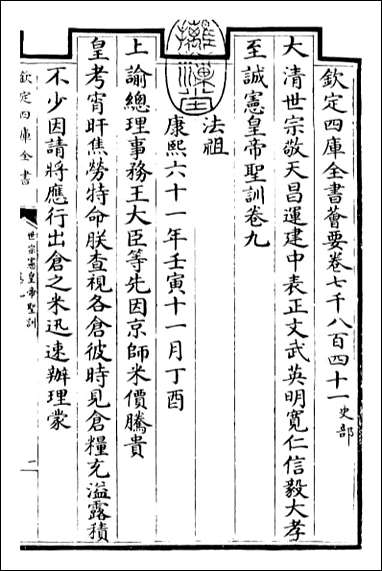 欽定四庫全書薈要卷七千八百四十一史部
大清世宗敬天昌運建中表正文武英明寬仁信毅大孝
至誠憲皇帝聖訓卷九
法祖
康熙六十一年壬寅十一月丁酉
上諭總理事務王大臣等先因京師米價騰貴
皇考宵旰焦勞特命朕查視各倉彼時見倉糧充溢露積
不少因請將應行出倉之米迅速辦理蒙
欽定四庫全書
世宗憲皇帝聖訓
一